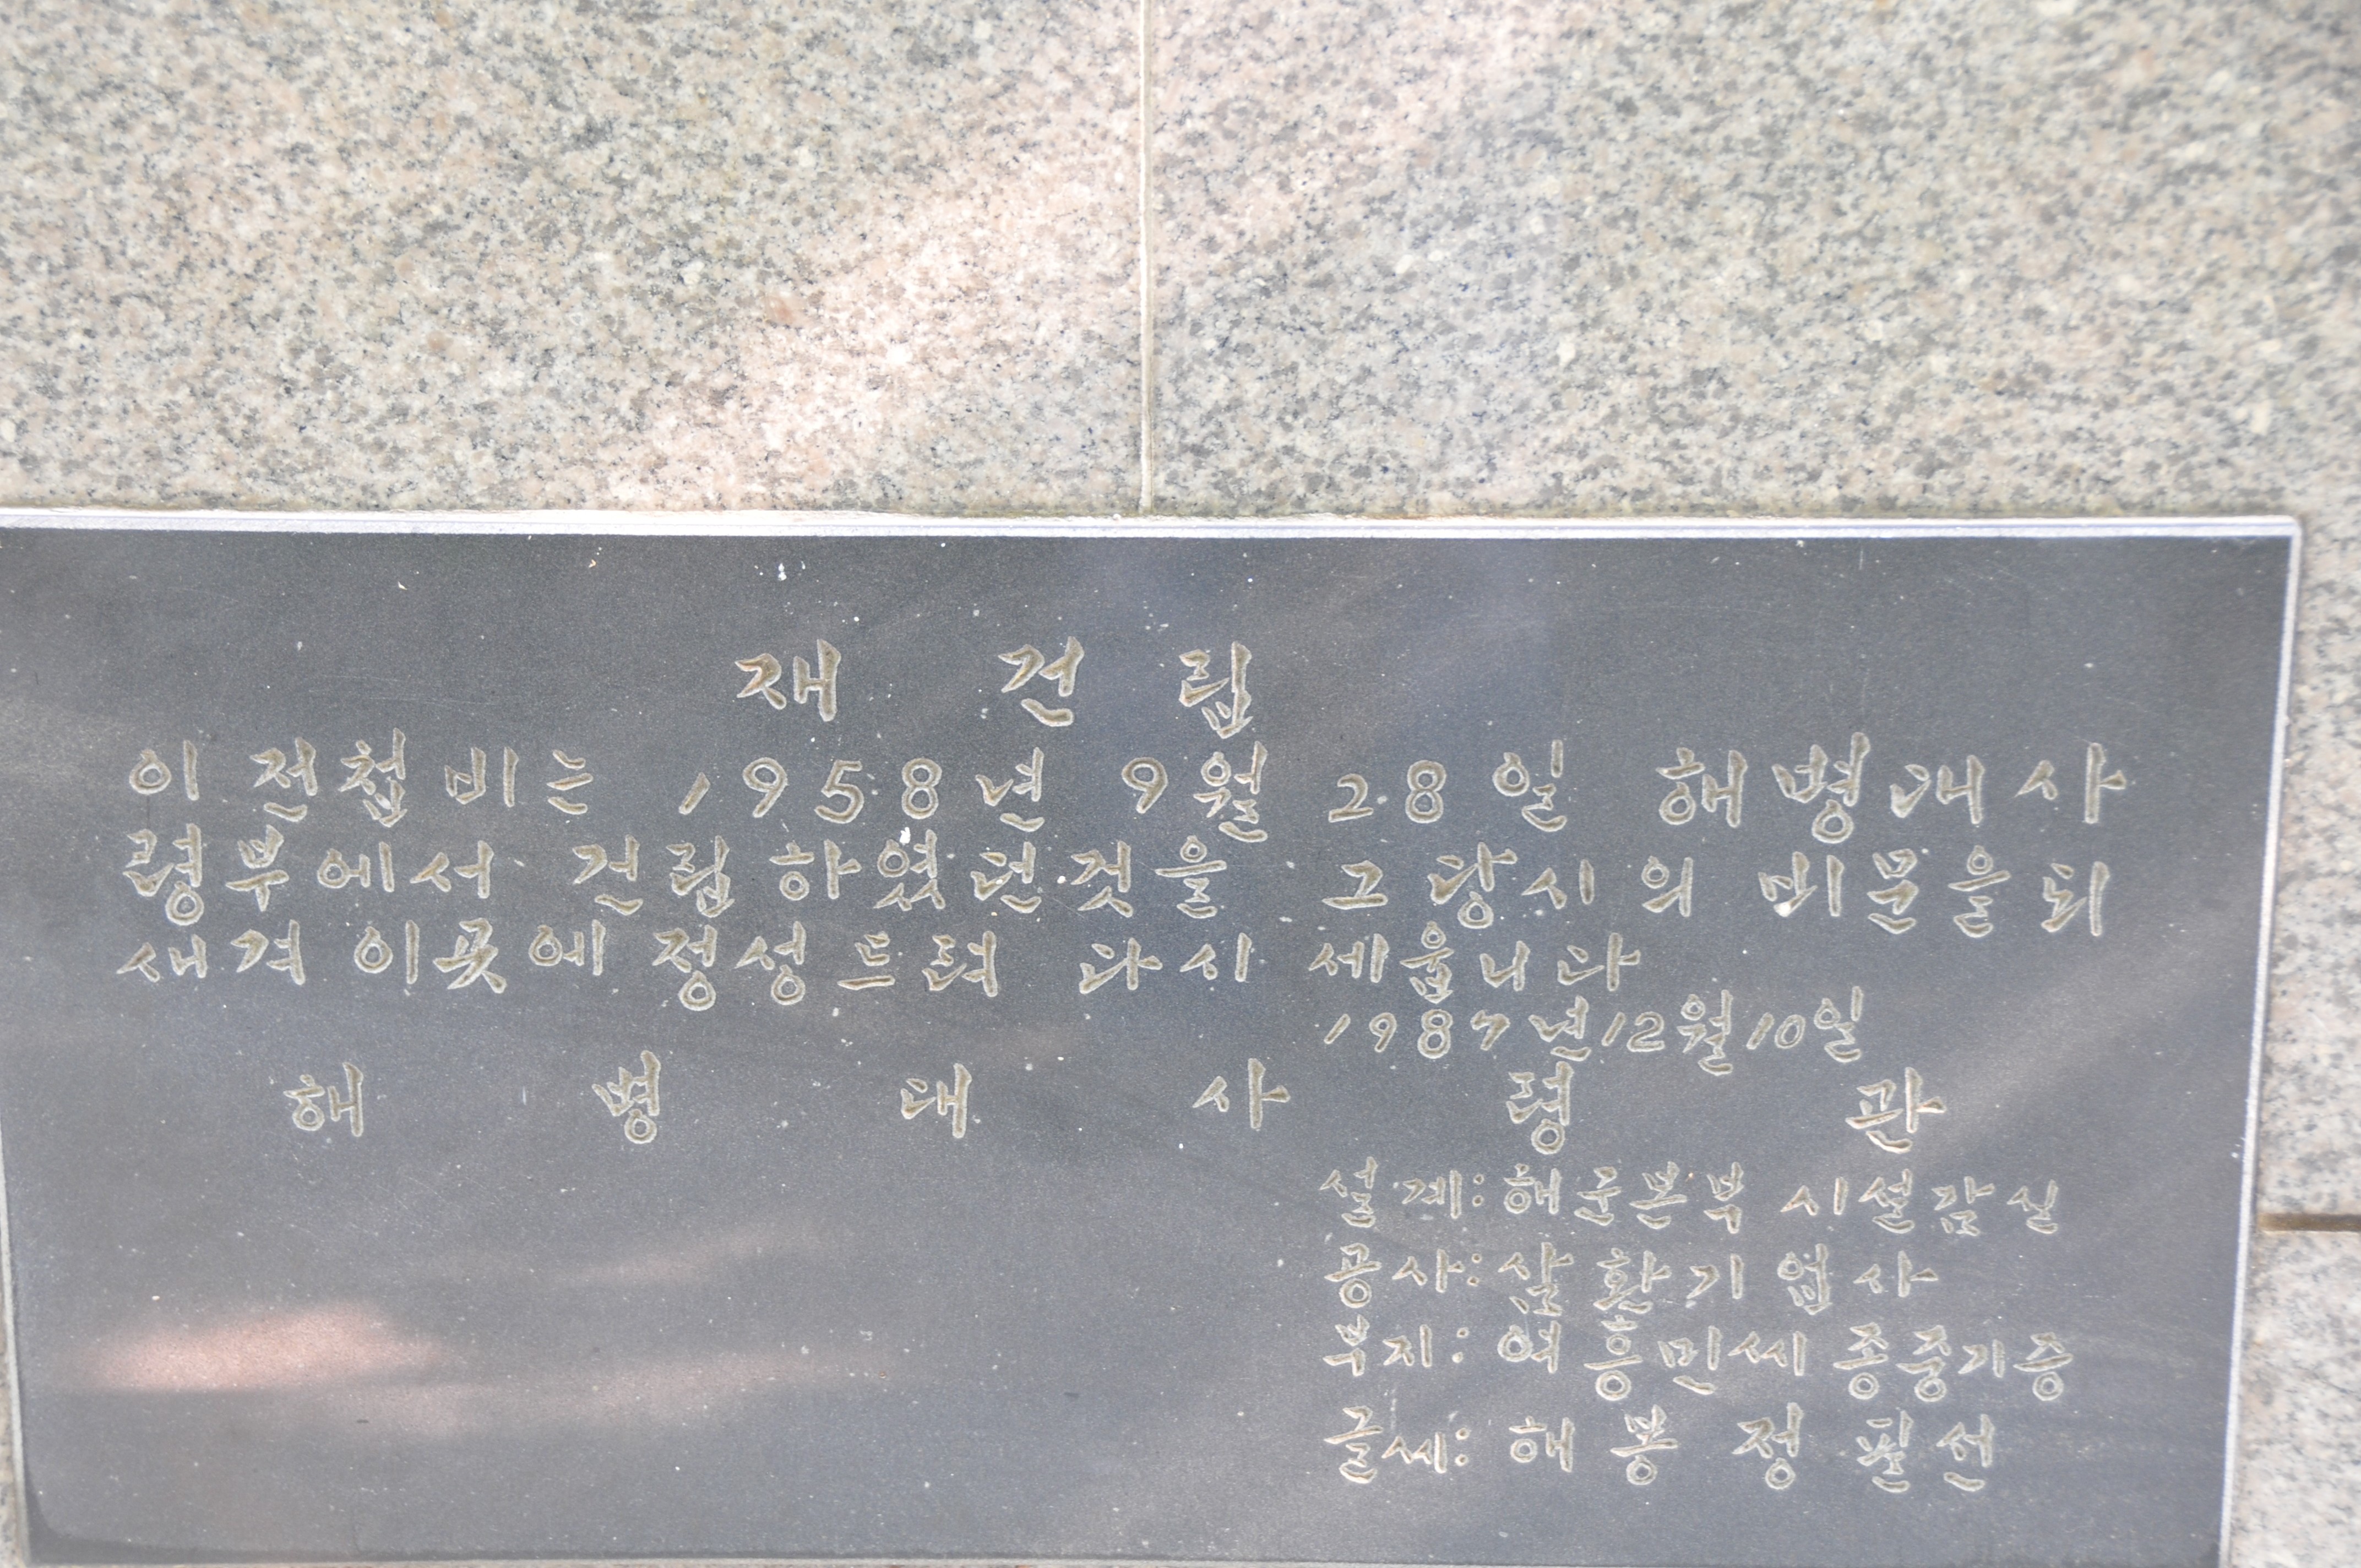 재 건 립
이 전첩비는 1958년 9월 28일 해병대사
령부에서 건립하였던것을 그 당시의 비문을 되
새겨 이곳에 정성드려 다시 세웁니다
1987년12월10일
해 병 대 사 령 관
설계: 해군본부 시설감실
공사: 삼환기업사
부지: 여흥민씨 종중기증
글씨: 해봉 정필선